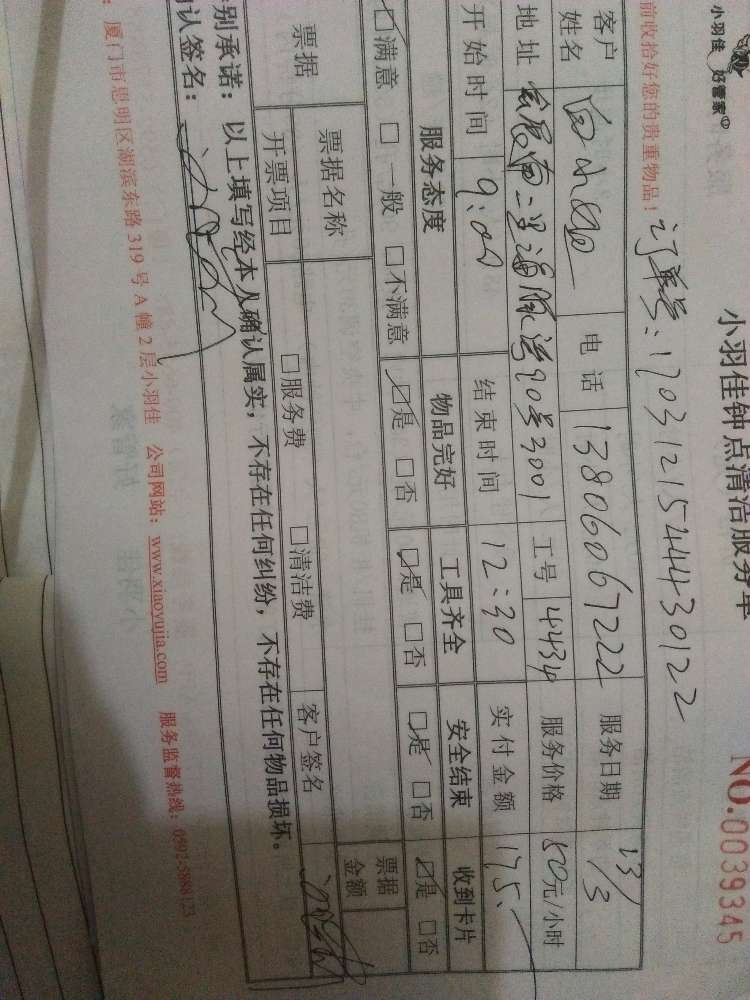 小羽佳 好管家
小羽佳钟点清洁服务单
NO.0039345
前收拾好您的贵重物品！
订单号：1703121544430122
客户姓名 电话 13806067222 服务日期 13/3
地址 会展南二里海 90号3001 工号 4434 服务价格 50元/小时
开始时间 9:00 结束时间 12:30 实付金额 175.-
服务态度 物品完好 工具齐全 安全结束 收到卡片
☑满意 □一般 □不满意 ☑是 □否 ☑是 □否 ☑是 □否 ☑是 □否
票据 票据名称 票据金额
开票项目 □服务费 □清洁费 客户签名
别承诺：以上填写经本人确认属实，不存在任何纠纷，不存在任何物品损坏。
认签名：
：厦门市思明区湖滨东路319号A幢2层小羽佳 公司网站：www.xiaoyujia.com 服务监督热线：0592-5888123